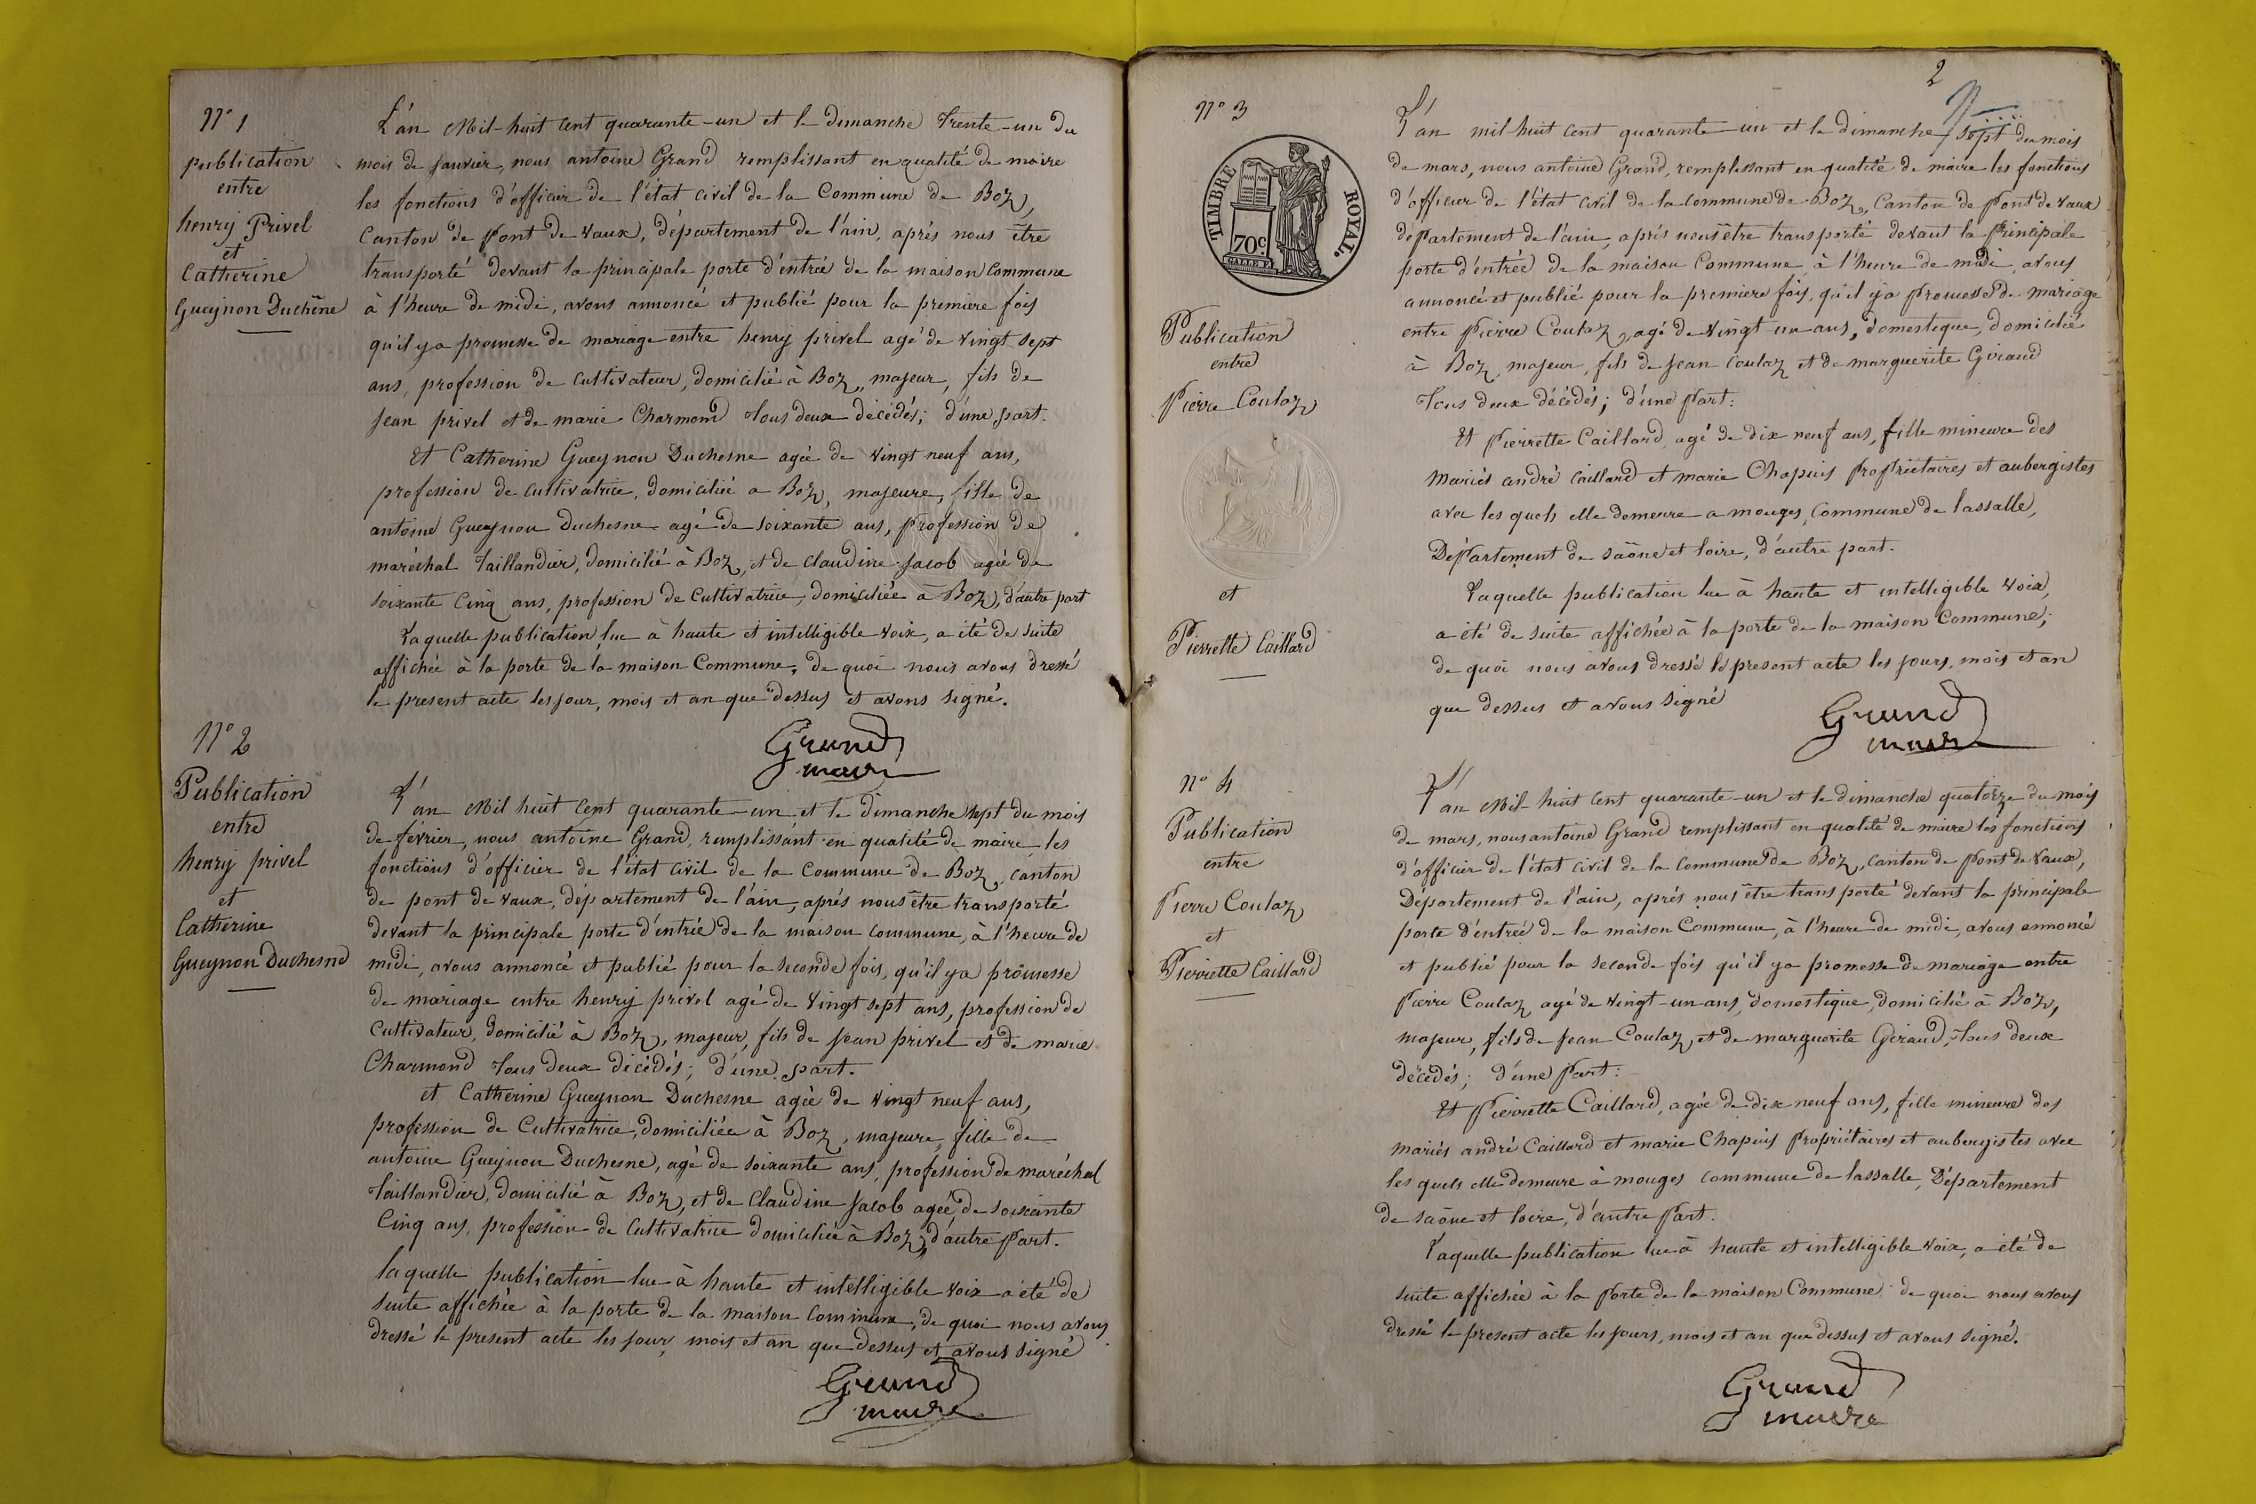 N° 1
publication
entre
henry Privel
et
Catherine
Gueynon Duchêne
L'an Mil-huit cent quarante-un et le dimanche trente-un du
mois de janvier, nous antoine Grand remplissant en qualité de maire
les fonctions d'officier de l'état civil de la Commune de Boz,
Canton de Pont de Vaux, département de l'ain, après nous être
transporté devant la principale porte d'entrée de la maison Commune
à l'heure de midi, avons annoncé et publié pour la premiere fois
qu'il y a promesse de mariage entre henry privel agé de vingt sept
ans, profession de Cultivateur, domicilié à Boz, majeur, fils de
Jean privel et de marie Charmond tous deux décédés; d'une part.
Et Catherine Gueynon Duchesne agée de vingt neuf ans,
profession de cultivatrice, domiciliée a Boz, majeure, fille de
antoine Gueynon Duchesne agé de soixante ans, profession de
maréchal Taillandier, domicilié à Boz, et de Claudine Jacob agée de
soixante Cinq ans, profession de Cultivatrice, domiciliée à Boz, d'autre part
Laquelle publication lue à haute et intelligible voix, a été de suite
affichée à la porte de la maison Commune, de quoi nous avons dressé
le present acte les jour, mois et an que dessus et avons signé.
Grand
maire
N° 2
Publication
entre
henry privel
et
Catherine
Gueynon Duchesne
L'an Mil huit Cent quarante-un et le dimanche sept du mois
de février, nous antoine Grand, remplissant en qualité de maire les
fonctions d'officier de l'état civil de la Commune de Boz, canton
de pont de vaux, département de l'ain, après nous être transporté
devant la principale porte d'entrée de la maison commune, à l'heure de
midi, avons annoncé et publié pour la seconde fois, qu'il y a promesse
de mariage entre henry privel agé de vingt sept ans, profession de
Cultivateur, domicilié à Boz, majeur, fils de Jean privel et de marie
Charmond tous deux décédés; d'une part.
et Catherine Gueynon Duchesne agée de vingt neuf ans,
profession de Cultivatrice, domiciliée à Boz, majeure, fille de
antoine Gueynon Duchesne, agé de soixante ans, profession de maréchal
Taillandier, domicilié à Boz, et de Claudine Jacob agée de soixante
Cinq ans, profession de Cultivatrice domiciliée à Boz, d'autre part.
laquelle publication lue à haute et intelligible voix a été de
suite affichée à la porte de la maison Commune, de quoi nous avons
dressé le present acte les jour, mois et an que dessus et avons signé
Grand
maire
2
N° 3
TIMBRE ROYAL.
70c
Publication
entre
Pierre Coulaz
et
Pierrette Caillard
L'an mil huit cent quarante-un et le dimanche sept du mois
de mars, nous antoine Grand, remplissant en qualité de maire les fonctions
d'officier de l'état civil de la commune de Boz, Canton de Pont de Vaux
département de l'ain, après nous être transporté devant la principale
porte d'entrée de la maison Commune à l'heure de midi, avons
annoncé et publié pour la premiere fois, qu'il y a promesse de mariage
entre Pierre Coulaz, agé de vingt un ans, domestique, domicilié
à Boz, majeur, fils de Jean Coulaz et de marguerite Giraud
Tous deux décédés; d'une part:
Et Pierrette Caillard, agé de dix neuf ans, fille mineure des
mariés andré Caillard et marie Chapuis propriétaires et aubergistes
avec les quels elle demeure a mouges, Commune de lassalle,
Département de saône et loire, d'autre part.
Laquelle publication lue à haute et intelligible voix,
a été de suite affichée à la porte de la maison Commune;
de quoi nous avons dressé le present acte les jours, mois et an
que dessus et avons signé
Grand
maire
N° 4
Publication
entre
Pierre Coulaz
et
Pierrette Caillard
L'an Mil-huit cent quarante-un et le dimanche quatorze du mois
de mars, nous antoine Grand remplissant en qualité de maire les fonctions
d'officier de l'état civil de la Commune de Boz, canton de Pont de Vaux,
Département de l'ain, après nous être transporté devant la principale
porte d'entrée de la maison Commune, à l'heure de midi, avons annoncé
et publié pour la seconde fois qu'il y a promesse de mariage entre
Pierre Coulaz agé de vingt-un-ans, domestique, domicilié à Boz,
majeur, fils de Jean Coulaz, et de marguerite Giraud, tous deux
décédés; d'une Part:
Et Pierrette Caillard, agée de dix neuf ans, fille mineure des
mariés andré Caillard et marie Chapuis Propriétaires et aubergistes avec
les quels elle demeure à mouges commune de lassalle, Département
de saône et loire, d'autre Part.
Laquelle publication lue à haute et intelligible voix, a été de
suite affichée à la Porte de la maison Commune de quoi nous avons
dressé le present acte les jours, mois et an que dessus et avons signé.
Grand
maire